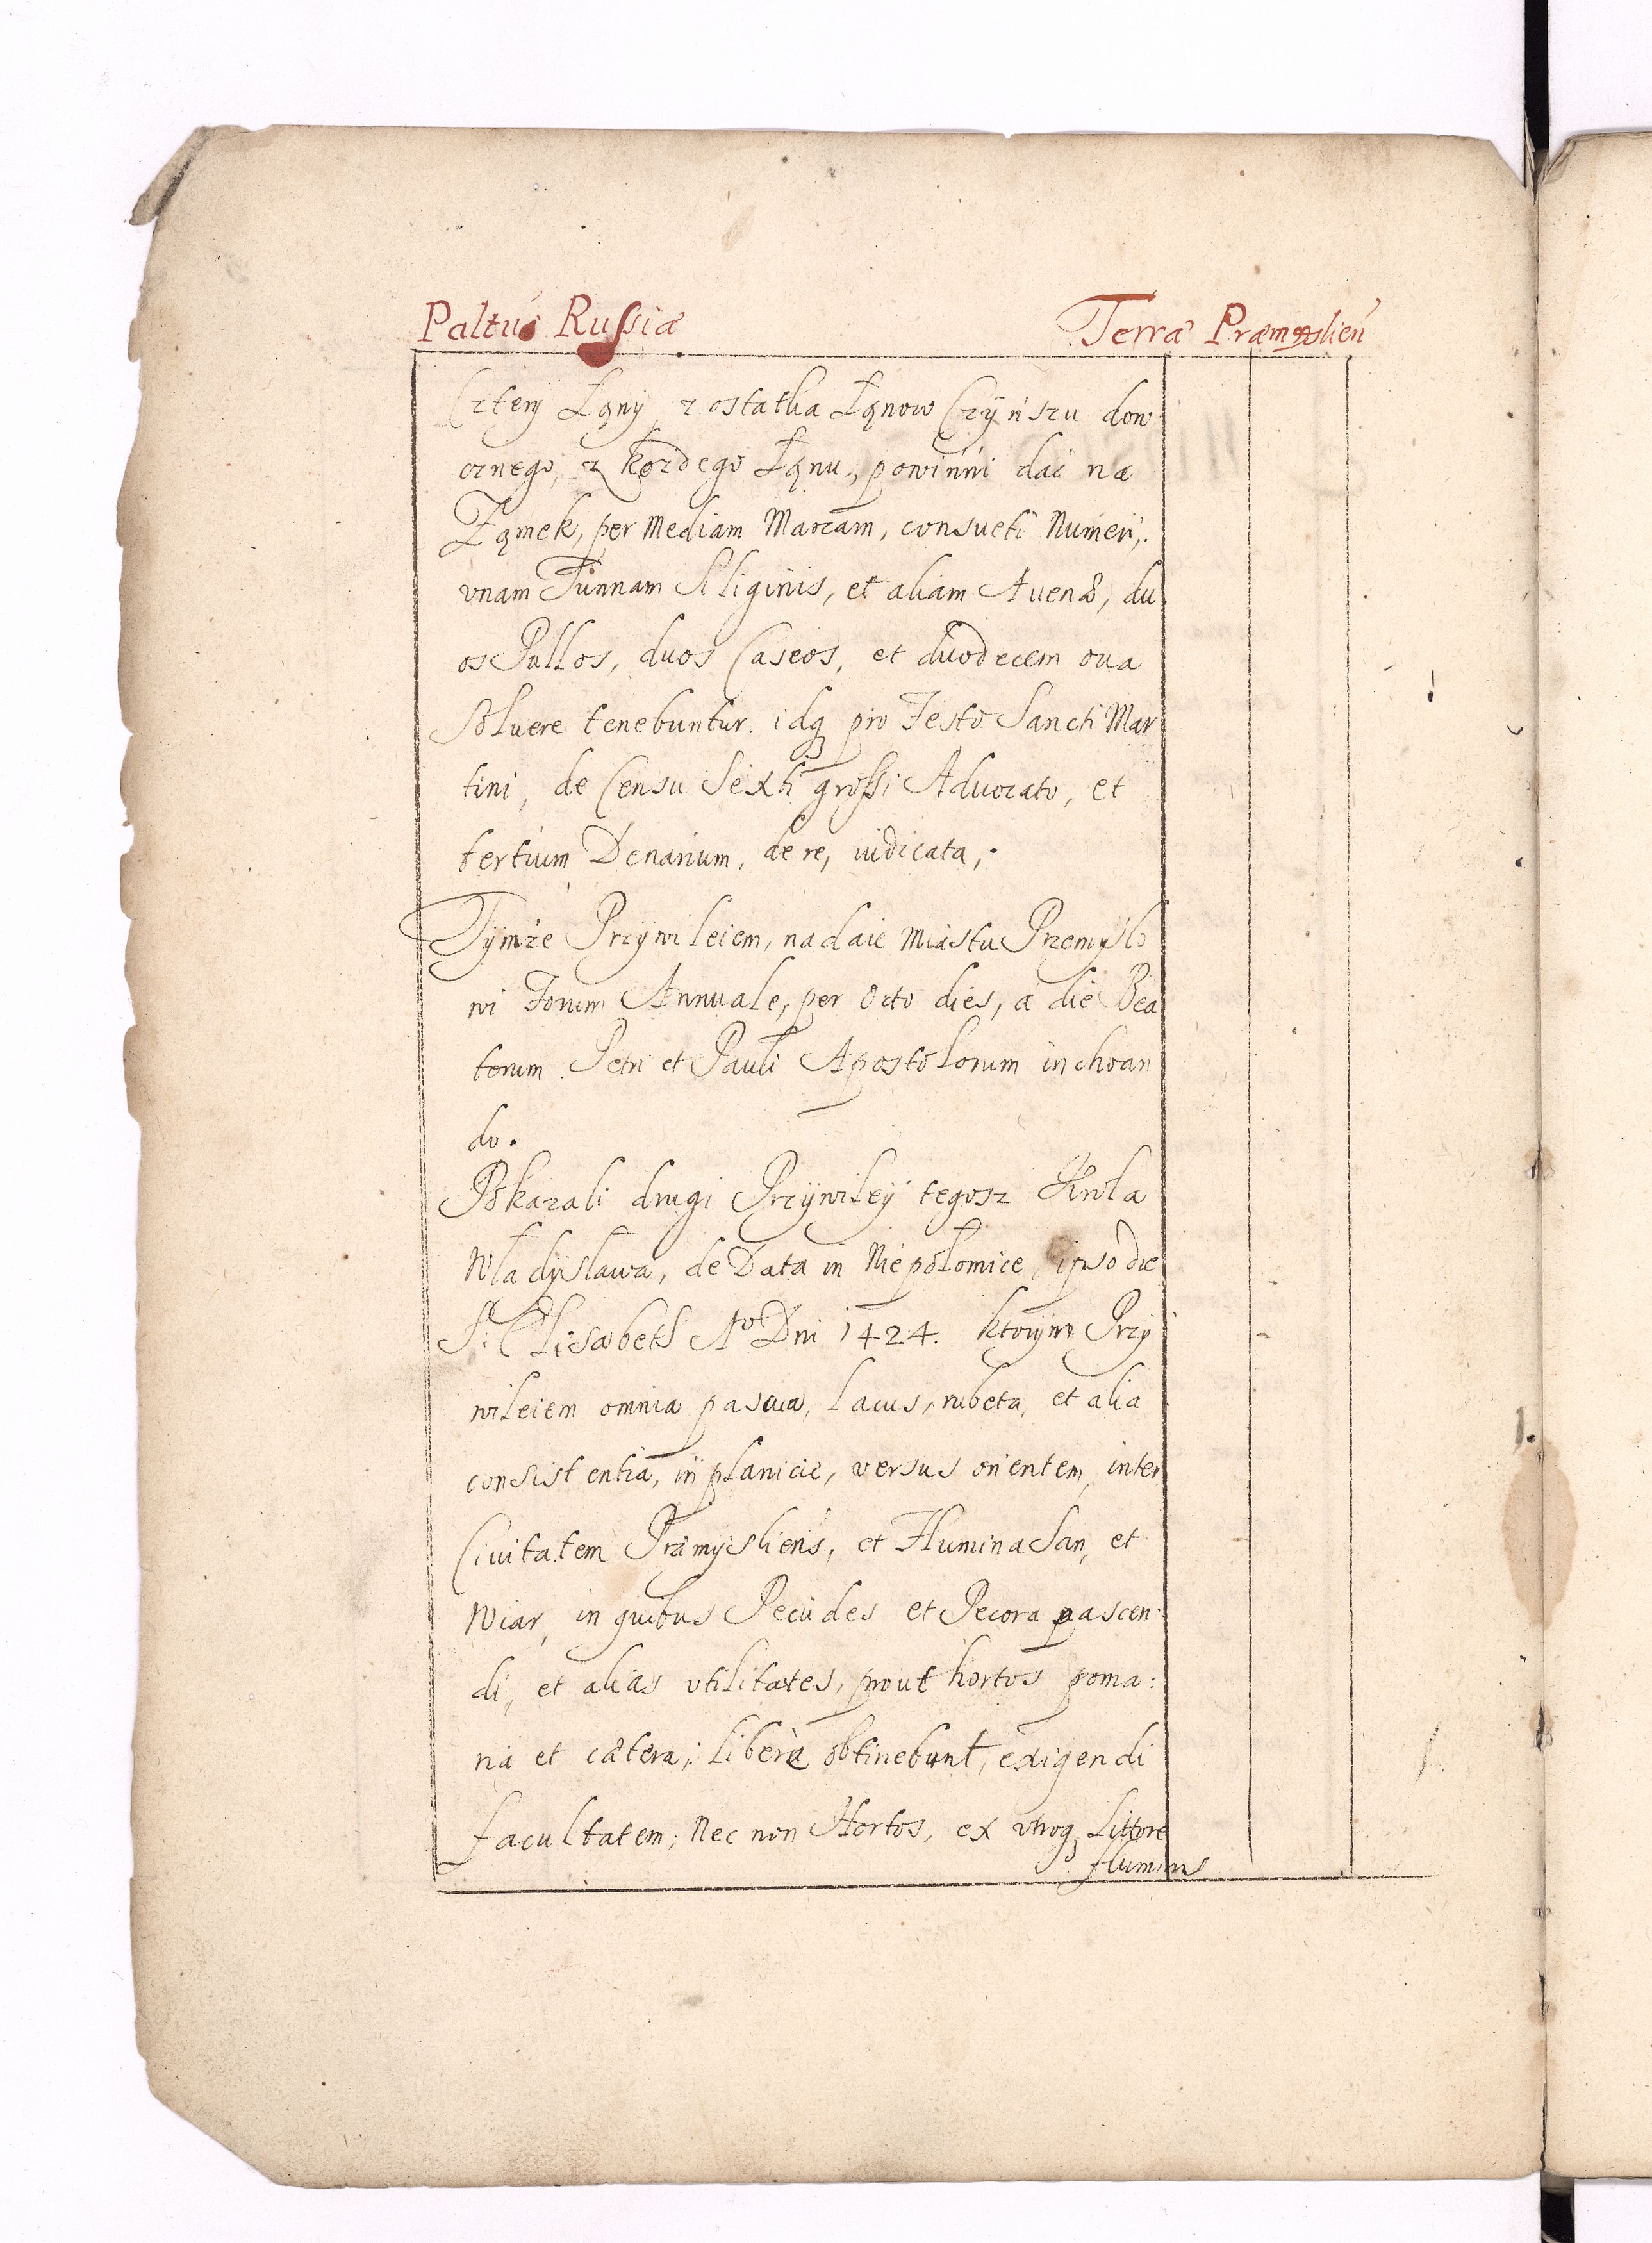 Paltus Russiæ
Terræ Præmysslien
Cztery Łąny, z ostatka Łąnow Czÿnszu dow
ornego, z kozdego Łąnu, powinni dac na
Ząmek, per Mediam Marcam, consueti Numeri,.
vnam Tunnam Siliginis, et aliam Auenæ, du
os Pullos, duos Caseos, et duodecem oua
Soluere tenebuntur. idq pro Festo Sancti Mar
tini, de Censu Sexti grossi Aduocato, et
tertium Denarium, de re, iudicata,.
Tymże Przywileiem, nadaie Miastu Przemyślo
wi Forum Annuale, per octo dies, a die Bea
torum Petri et Pauli Apostolorum inchoan
do.
Pokazali drugi Przÿwileÿ tegosz Krola
Władÿsława, de Data in Niepołomice, ipso die
S: Elisabeth Aº Dni 1424. ktorym Przÿ
wileiem omnia pascua, lacus, rubeta, et alia
consistentia, in planicie, versus orientem, inter
Ciuitatem Præmysliens, et Flumina San, et
Wiar, in quibus Pecudes et Pecora pascen
di, et alias vtilitates, prout hortos poma:
ria et cætera; liberè obtinebunt, exigendi
facultatem; Nec non Hortos, ex vtroq Littore
fluminis